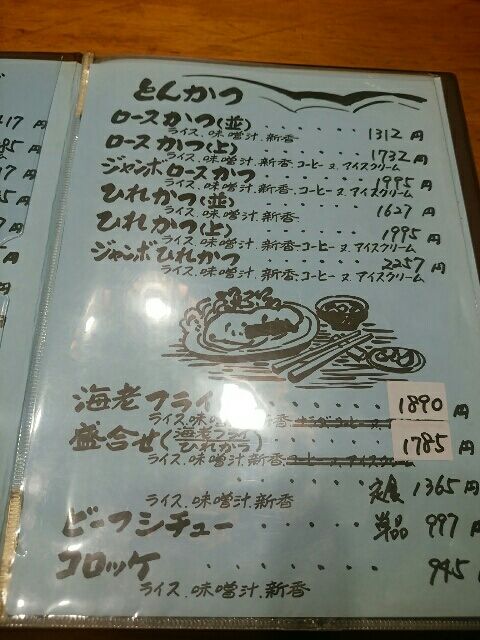 とんかつ
ロースかつ(並)・・・・・・1312円
ライス.味噌汁.新香
ロースかつ(上)・・・・・・1732円
ライス.味噌汁.新香.コーヒー又.アイスクリーム
ジャンボロースかつ・・・・・1995円
ライス.味噌汁.新香.コーヒー又.アイスクリーム
ひれかつ(並)・・・・・・1627円
ライス.味噌汁.新香
ひれかつ(上)・・・・・・1995円
ライス.味噌汁.新香.コーヒー又.アイスクリーム
ジャンボひれかつ・・・・・2257円
ライス.味噌汁.新香.コーヒー又.アイスクリーム
海老フライ・・・・・・1890円
ライス.味噌汁.新香
盛合せ(海老フライ ひれかつ)・・・・・1785円
ライス.味噌汁.新香.コーヒー又.アイスクリーム
定食 1365円
ライス.味噌汁.新香
ビーフシチュー・・・・・単品 997円
コロッケ・・・・・・945
ライス.味噌汁.新香